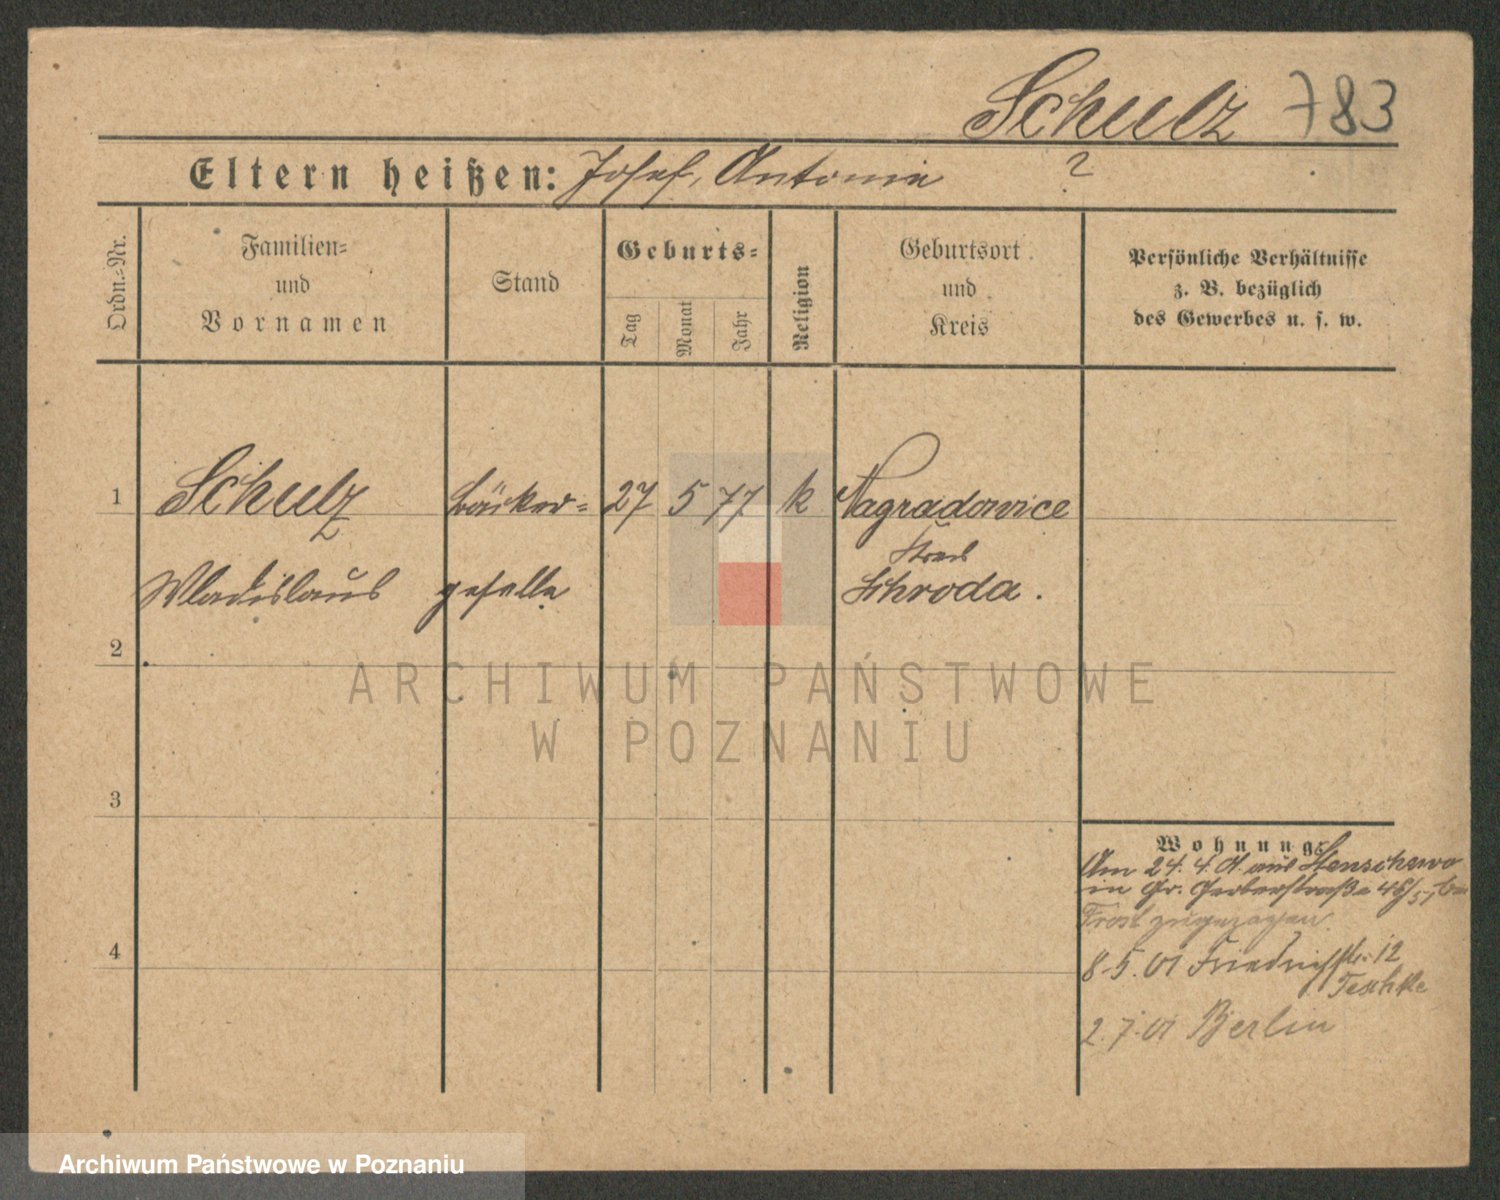 Schulz 783
Eltern heißen: Josef, Antonie ?
Ordn.-Nr.
Familien-
und
Vornamen
Stand
Geburts-
Tag
Monat
Jahr
Religion
Geburtsort
und
Kreis
Persönliche Verhältnisse
z. B. bezüglich
des Gewerbes u. s. w.
1 Schulz Bäcker- 27 5 77 k Nagradowice
Kreis
Wladislaus geselle Schroda.
2
ARCHIWUM PAŃSTWOWE
W POZNANIU
3
Wohnung:
Am 24. 4. 01. aus
in Gr. Gerberstraße 46/
Frost zugezogen
4
8.5.01 Friedrichstr. 12
Teschke
2.7.01 Berlin
Archiwum Państwowe w Poznaniu